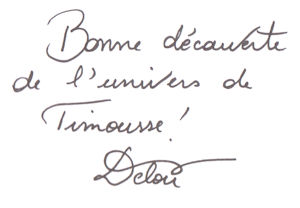 Bonne découverte
de l'univers de
Timousse!
Deloü